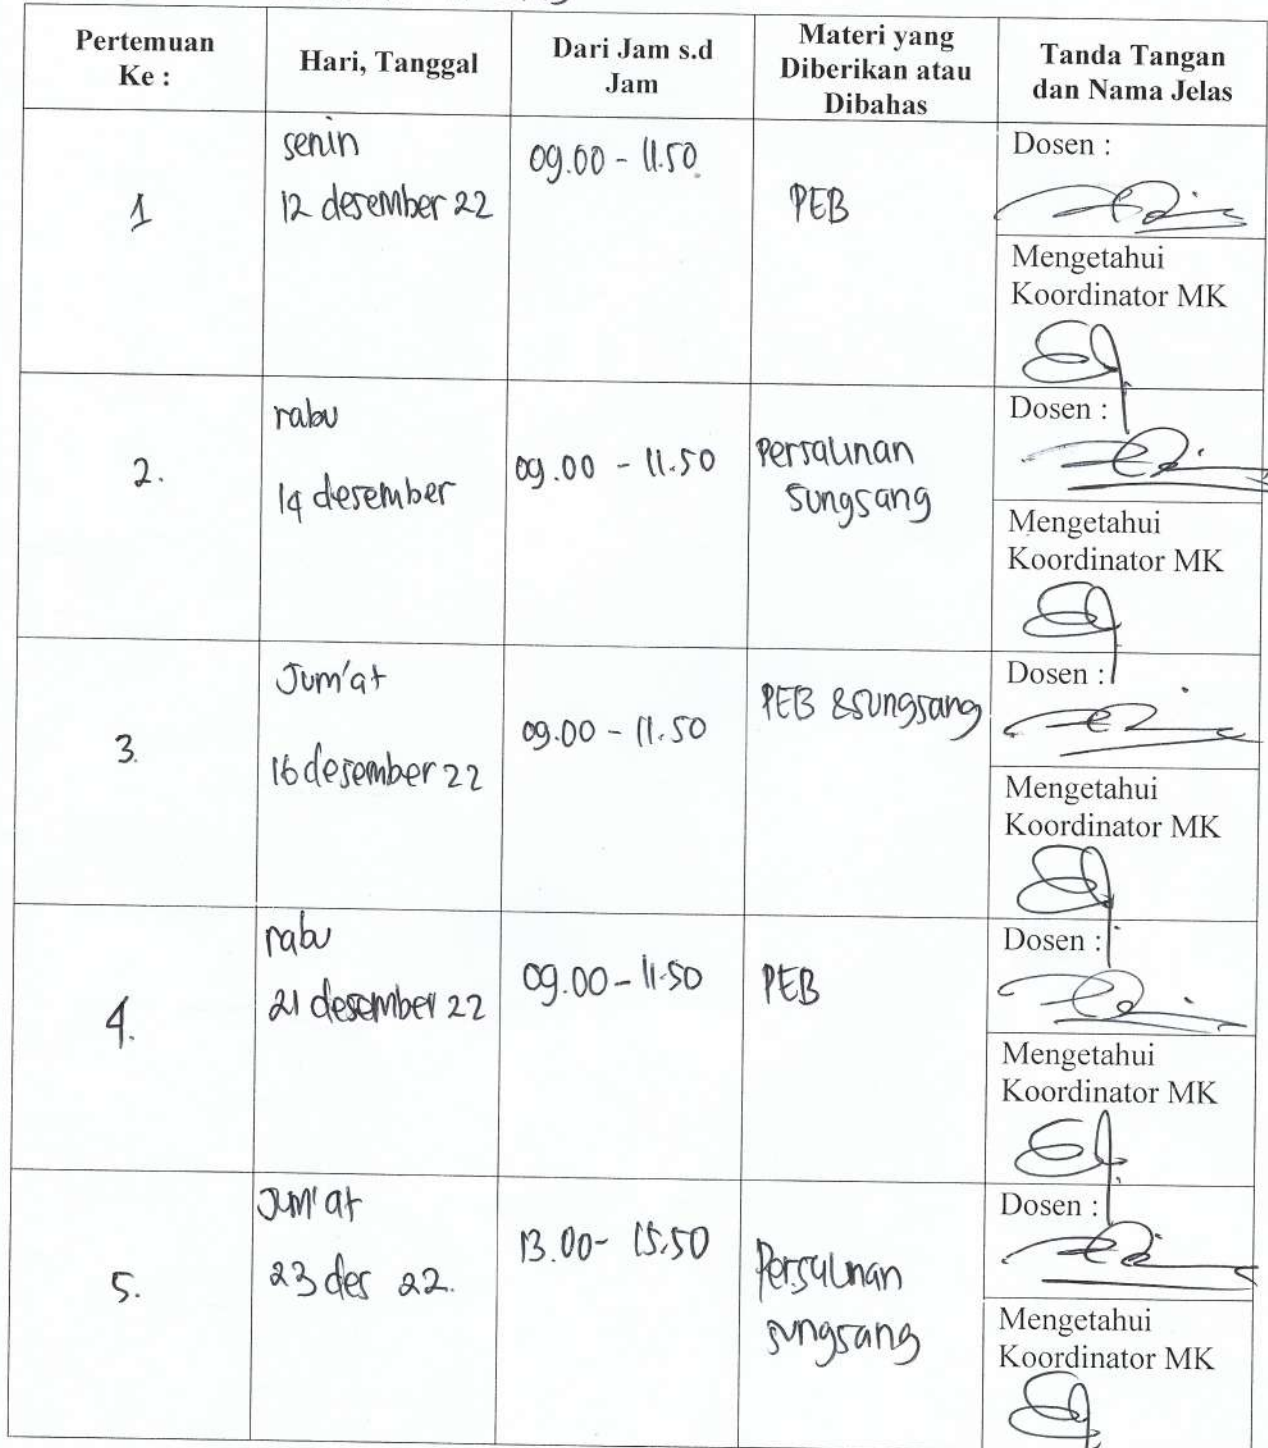 Pertemuan
Ke :
Hari, Tanggal
Dari Jam s.d
Jam
Materi yang
Diberikan atau
Dibahas
Tanda Tangan
dan Nama Jelas
1
senin
12 desember 22
09.00 - 11.50
PEB
Dosen :
Mengetahui
Koordinator MK
2.
rabu
14 desember
09.00 - 11.50
Persalinan
sungsang
Dosen :
Mengetahui
Koordinator MK
3.
Jum'at
16 desember 22
09.00 - 11.50
PEB & sungsang
Dosen :
Mengetahui
Koordinator MK
4.
rabu
21 desember 22
09.00 - 11.50
PEB
Dosen :
Mengetahui
Koordinator MK
5.
Jum'at
23 des 22.
13.00 - 15.50
Persalinan
sungsang
Dosen :
Mengetahui
Koordinator MK